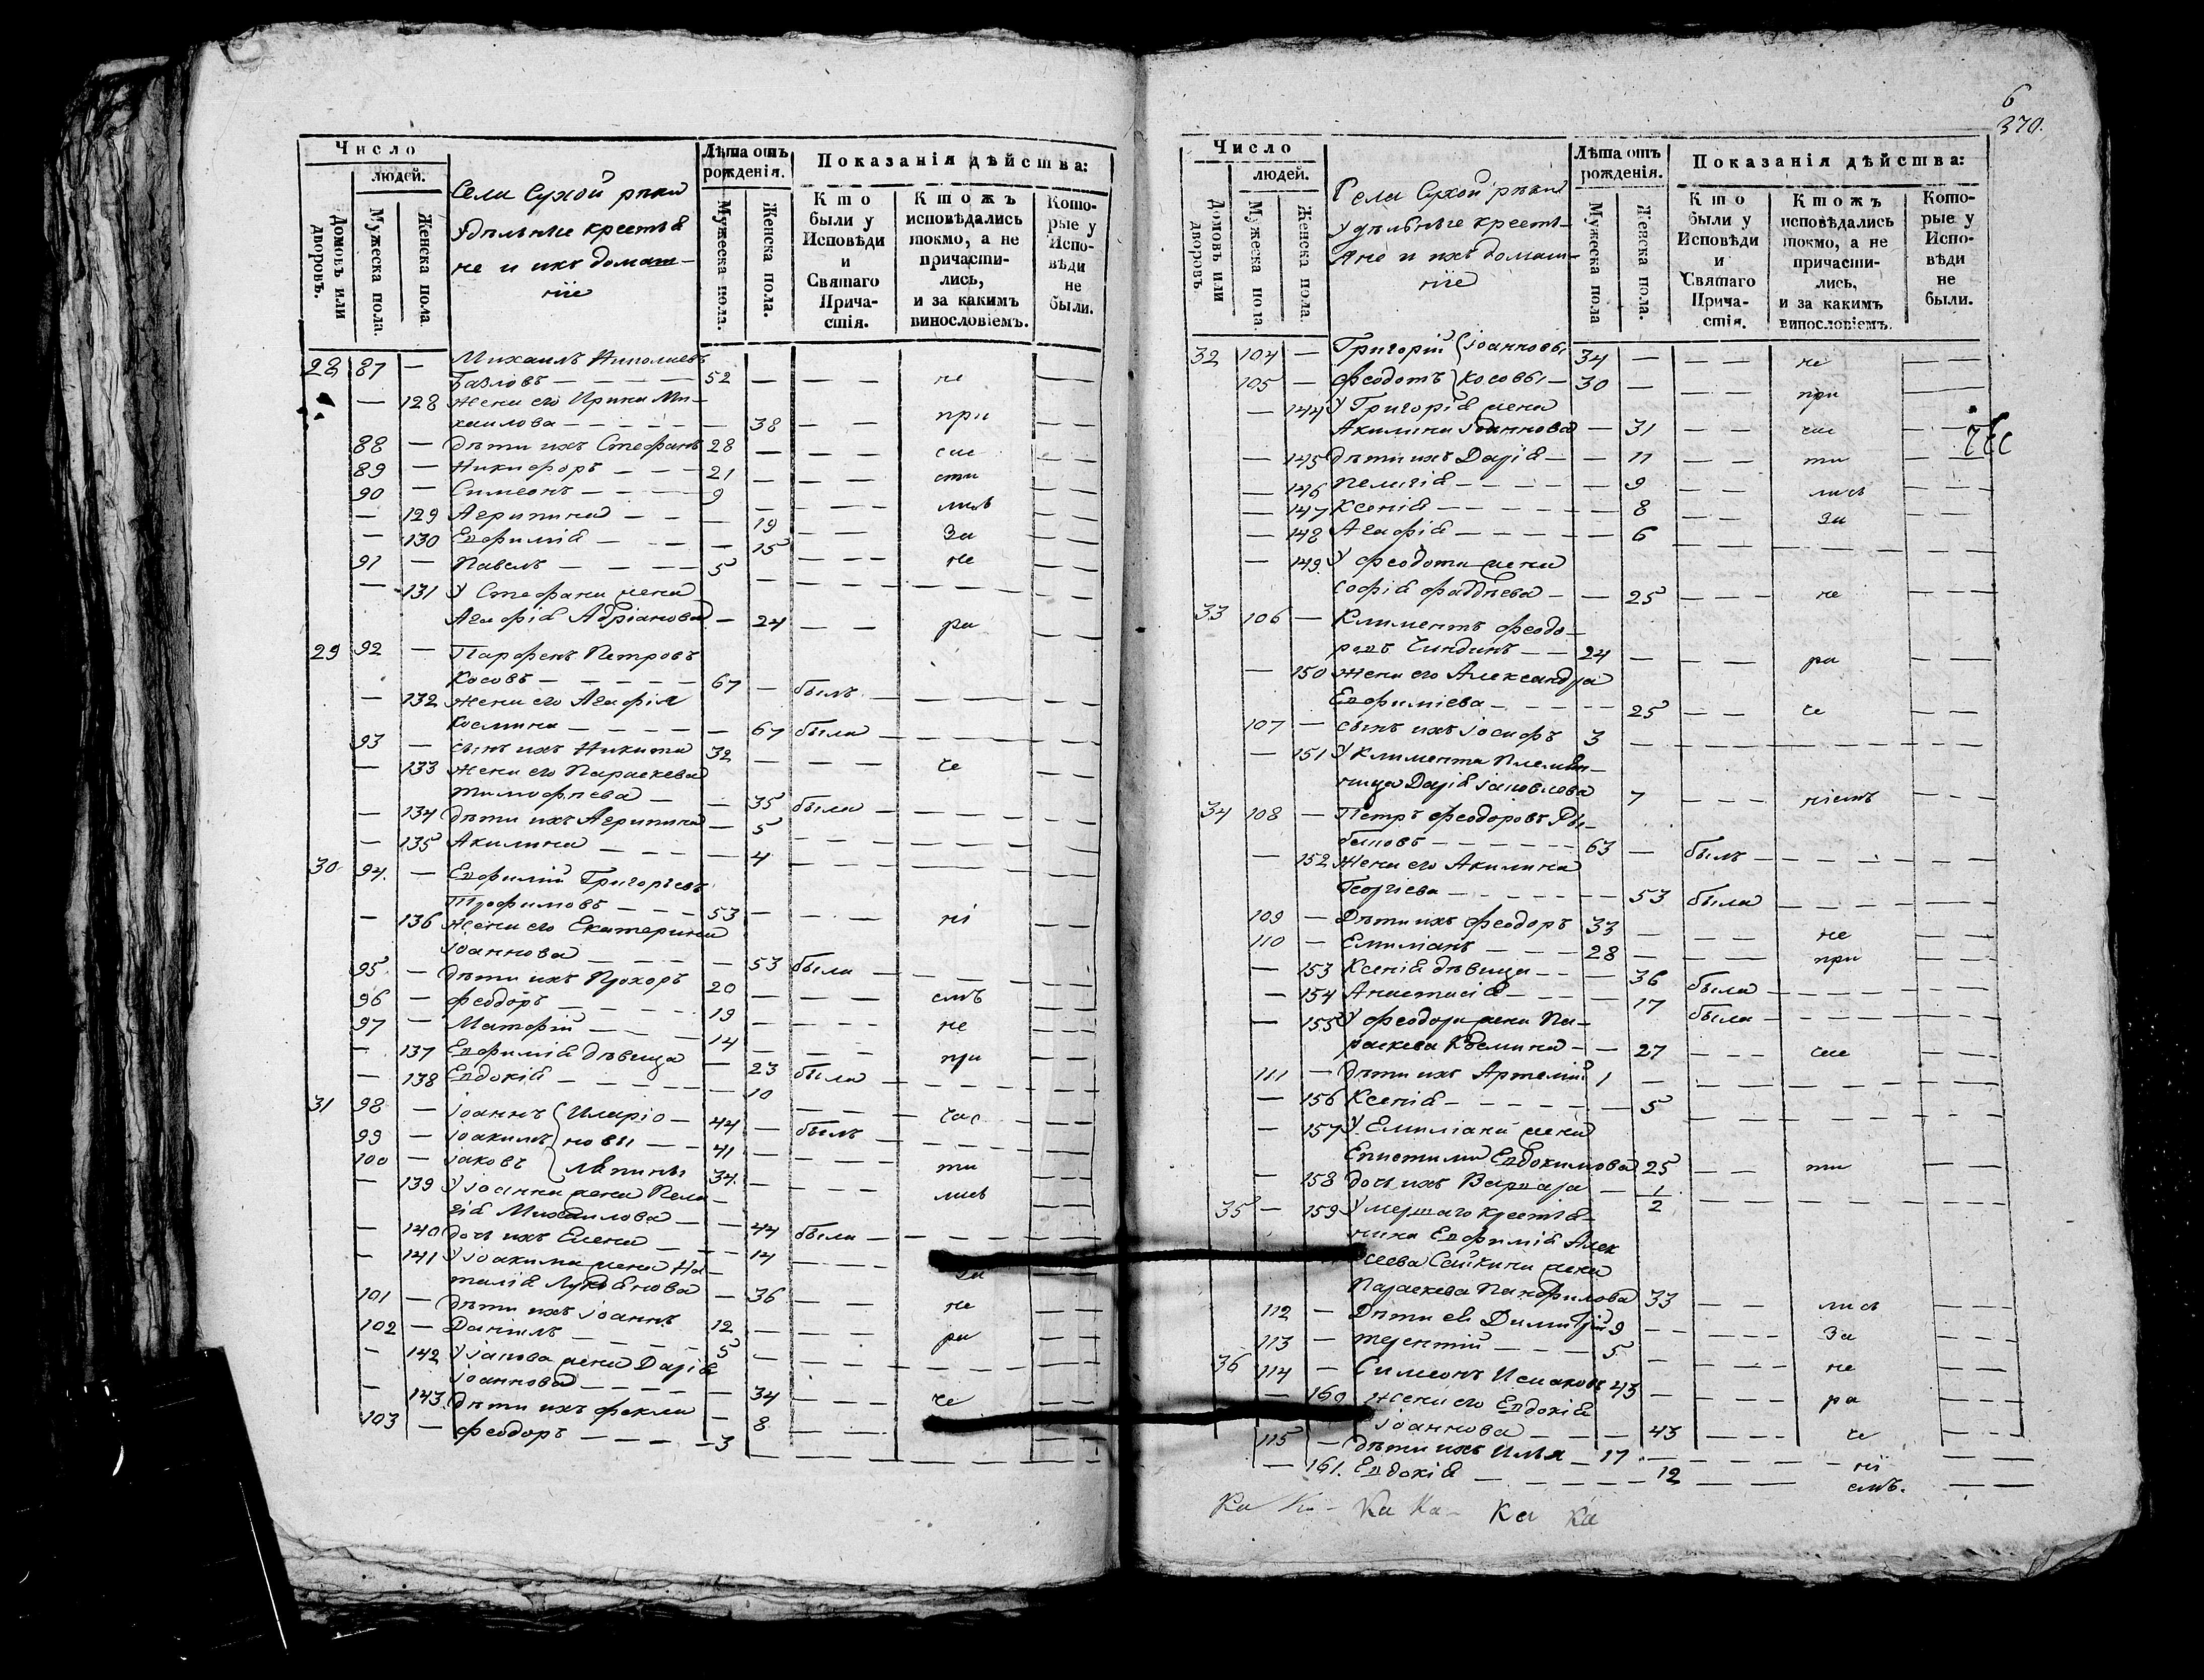 Число
людей.
Домовъ или дворовъ.
Мужеска пола.
Женска пола
Села Сухой рѣки
Удѣльные крестья
не и ихъ домаш-
ніе
Лѣта отъ рожденія.
Мужеска пола.
Женска пола.
Показанія дѣйства:
Кто были у Исповѣди и Святаго Прича-стія.
Ктожъ исповѣдались токмо, а не причасти-лись, и за какимъ винословіемъ.
Кото-рые у Испо-вѣди не были.
28 87 — Михаилъ
— — — — 52 — — — не
— 128 жена его Ирина Ми-
хаилова — — — — 38 — — при
88 — дѣти ихъ Стефанъ 28 — — — час
89 — Никифоръ — — — 21 — — — сти
90 — Симеонъ — — — — 9 — — — лись
— 129 Агрипина — — — 19 — — — за
— 130 Евфимія — — — — 15 — — — не
91 — Павелъ — — — — 5
— 131 У Стефана жена
Агафія Адріанова — 24 — — ра
29 92 — Парфенъ Петровъ
Косовъ — — — — 67 — былъ
— 132 жена его Агафія
Космина — — — — 67 была
93 — сынъ ихъ Никита 32 — — — че
— 133 жена его Параскева
Тимофѣева — — 35 была
— 134 дѣти ихъ Агрипина — 5
— 135 Акилина — — — — 4
30 94. — Евфимій Григорьевъ
Трофимовъ — — — 53 — — — ні
— 136 жена его Екатерина
Іоаннова — — — — 53 была
95 — дѣти ихъ Прохоръ 20 — — — емъ
96 — Феодоръ — — — — 19 — — — не
97 — Матфій — — — 14 — — — при
— 137 Евфимія дѣвица — 23 была
— 138 Евдокія — — — — 10
31 98 — Іоаннъ Иларіо — 44 — былъ — час
99 — Іоакимъ новы — — 41 — — — ти
100 — Іаковъ Ляпины 34. — — — лись
— 139 У Іоанна жена Пела-
гія Михаилова — — 44 была
— 140 дочь ихъ Елена — — — 14
— 141 У Іоакима жена На-
талія Лукіянова — 36 — — не
101 — дѣти ихъ Іоаннъ 12 — — — ра
102 — Даніилъ — — — — 5
— 142 У Іакова жена Дарія
Іоаннова — — — — 34 — — че
— 143. дѣти ихъ Фекла — 8
103 — Феодоръ — — — — 3
6
370.
Число
людей.
Домовъ или дворовъ
Мужеска пола
Женска пола.
Села Сухой рѣки
Удѣльные кресть-
яне и ихъ домаш-
ніе
Лѣта отъ рожденія.
Мужеска пола
Женска пола.
Показанія дѣйства:
Кто были у Исповѣди и Святаго Прича-стія.
Ктожъ исповѣдались токмо, а не причасти-лись, и за какимъ винословіемъ.
Кото-рые у Испо-вѣди не были.
32 104 — Григорій Іоанновы 34 — — — не
105 — Феодотъ Косовы — 30 — — при
— 144 У Григорія жена
Акилина Іоаннова — 31 — — час
— 145 дѣти ихъ Дарія — — 11 — — ти
— 146 Пелагія — — — — 9 — — лись
— 147 Ксенія — — — — 8 — — за
— 148 Агафія — — — — 6
— 149. У Феодота жена
Софія Фаддѣева — — 25 — — не
33 106 — Климентъ Феодо-
ровъ — — 24 — — — ра
— 150 жена его Александра
Евфиміева — — — — 25 — — че
107 — сынъ ихъ Іосифъ 3
— 151 У Климента племян-
ница Дарія Іаковлева 7 — — ніемъ
34 108 — Петръ Феодоровъ
— — — — 63 — былъ
— 152 жена его Акилина
Георгіева — — — — 53 была
109 — Дѣти ихъ Феодоръ 33 — — — не
110 — Емиліанъ — — — 28 — — — при
— 153 Ксенія дѣвица — — 36 была
— 154 Анастасія — — — — 17 была
— 155 У Феодора жена Па-
раскева Космина — — 27 — — час
111 — дѣти ихъ Артемій 1
— 156 Ксенія — — — — — 5
— 157 У Емиліана жена
Епистимія Евдокимова 25 — — ти
— 158 дочь ихъ Варвара — 1/2
35 — 159 Умершаго крестья-
нина Евфимія Алек
сеева жена
Параскева Панфилова 33 — — лись
112 — Дѣти ея Димитрій 9 — — за
113 — Терентій — — — 5 — — не
36 114 — Симеонъ Исааковъ 43 — — ра
— 160 жена его Евдокія
Іоаннова — — — 43 — — че
115 — дѣти ихъ Илья — 17 — — ні
— 161. Евдокія — — — — 12 — — емъ.
Ка Ка — Ка Ка — Ка Ка